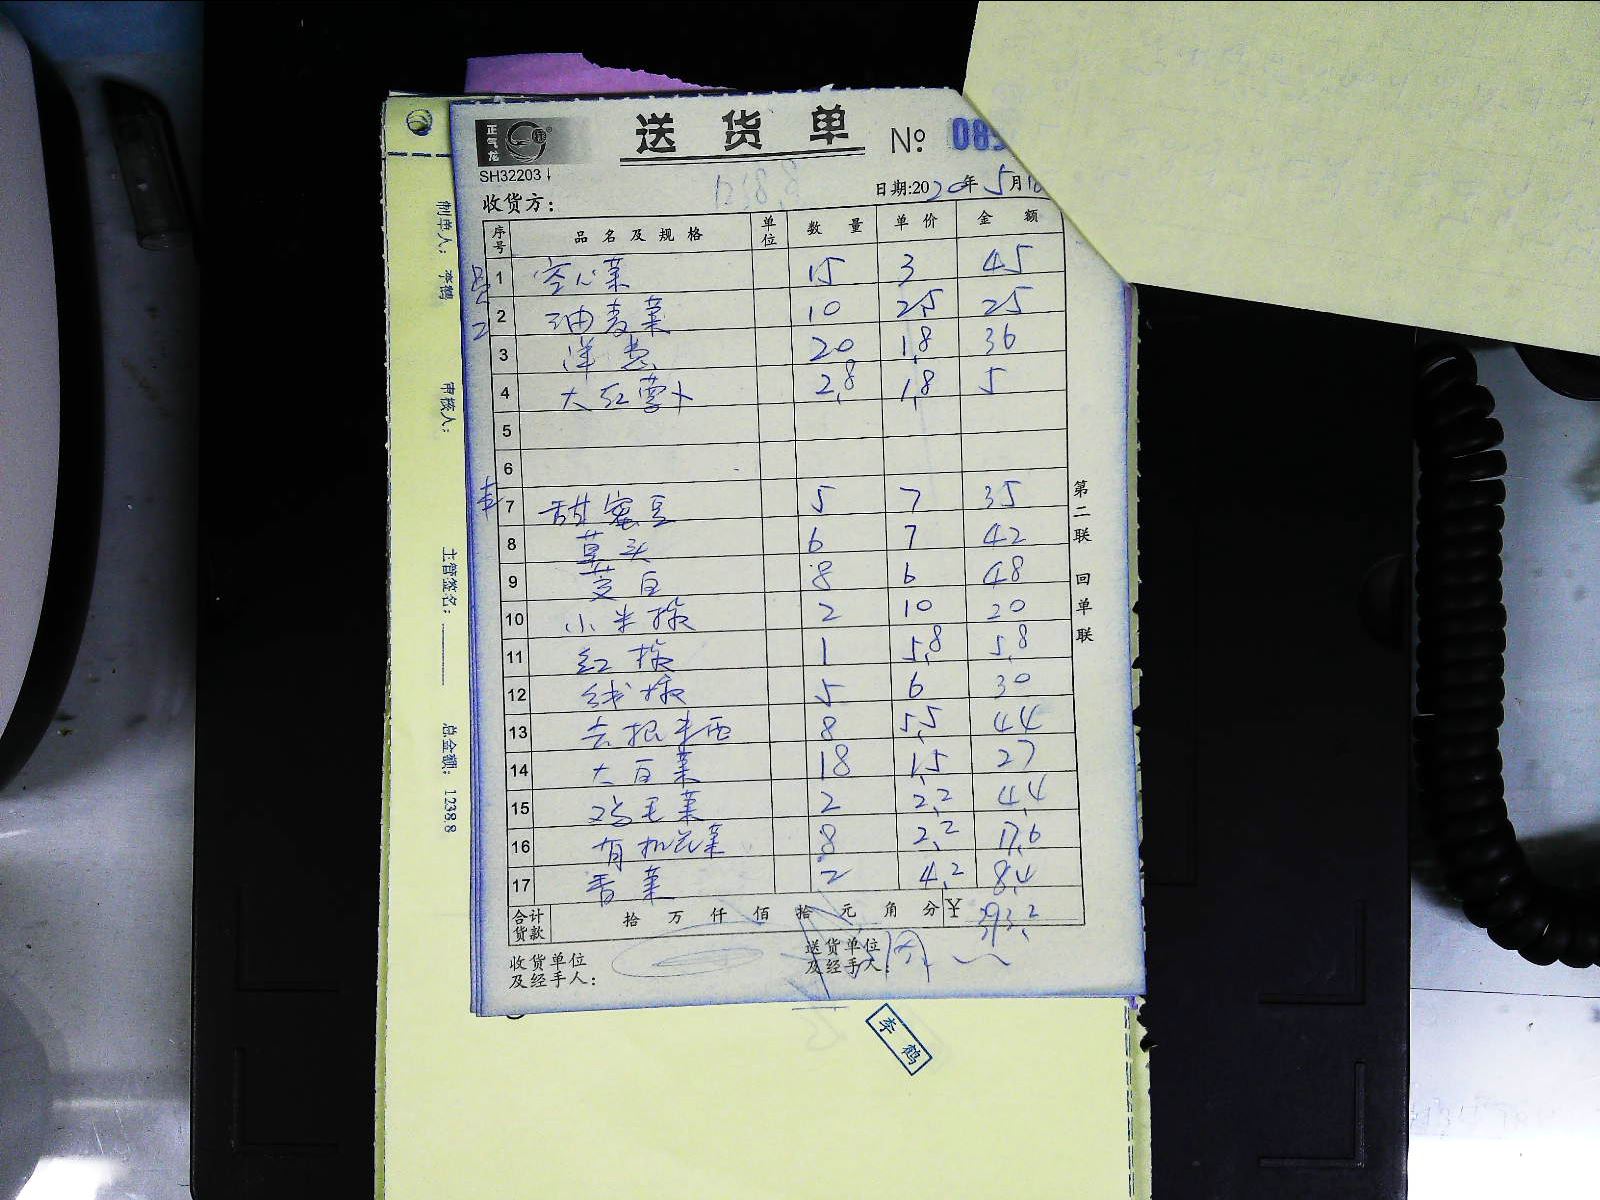 正气龙
送货单 № 089
SH32203
1238.8
日期:2020年5月10
收货方:
序号 品名及规格 单位 数量 单价 金额
员工
1 空心菜 15 3 45
2 油麦菜 10 2.5 25
3 洋葱 20 1.8 36
4 大红萝卜 2.8 1.8 5
5
6
7 甜蜜豆 5 7 35
8 草头 6 7 42
9 茭白 8 6 48
10 小米椒 2 10 20
11 红椒 1 5.8 5.8
12 线椒 5 6 30
13 去根米西 8 5.5 44
14 大白菜 18 1.5 27
15 鸡毛菜 2 2.2 4.4
16 有机花菜 8 2.2 17.6
17 香菜 2 4.2 8.4
合计货款 拾 万 仟 佰 拾 元 角 分 ¥ 393.2
收货单位及经手人:
送货单位及经手人:
第二联 回单联
制单人: 李鹤
审核人:
主管签名:
总金额: 1238.8
李鹤